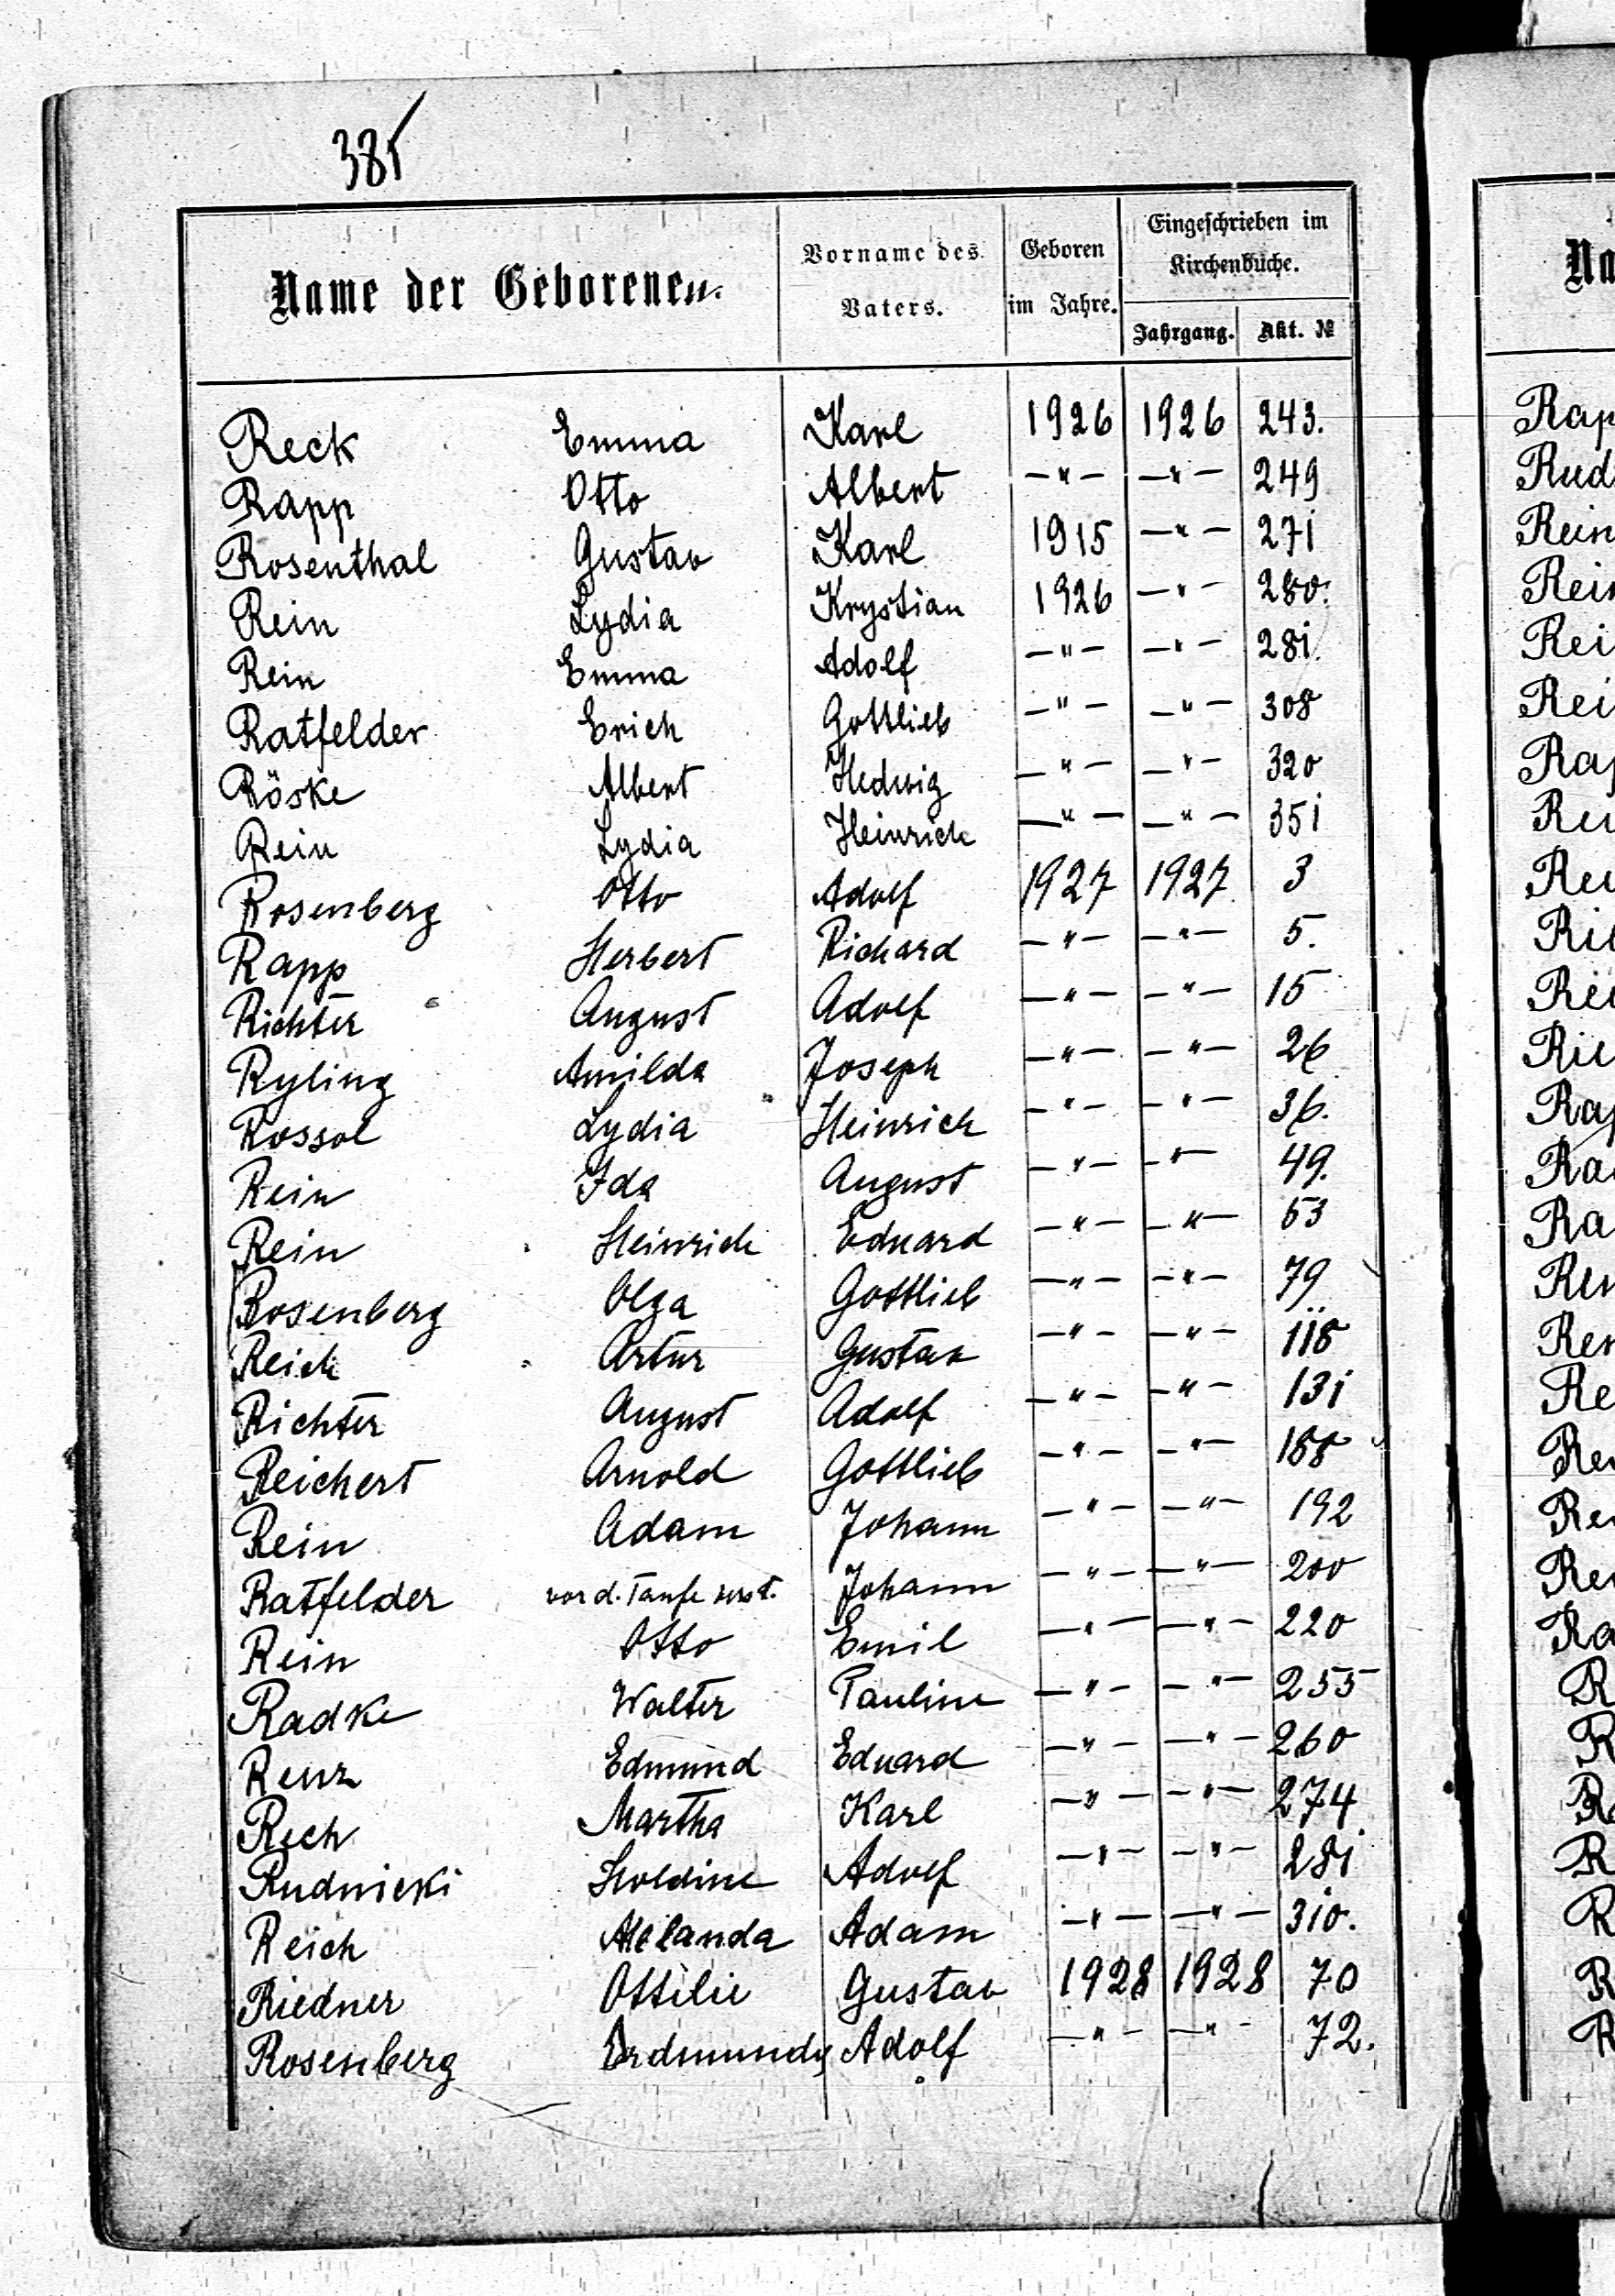 385
Name der Geborenen.
Vorname des Vaters.
Geboren im Jahre.
Eingeschrieben im Kirchenbuche.
Jahrgang. Akt. №
Reck Emma Karl 1926 1926 243.
Rapp Otto Albert —"— —"— 249
Rosenthal Gustav Karl 1915 —"— 271
Rein Lydia Krystian 1926 —"— 280.
Rein Emma Adolf —"— —"— 281.
Ratfelder Erich Gottlieb —"— —"— 308
Röske Albert Hedwig —"— —"— 320
Rein Lydia Heinrich —"— —"— 351
Rosenberg Otto Adolf 1927 1927 3
Rapp Herbert Richard —"— —"— 5.
Richter August Adolf —"— —"— 15
Ryling Amilda Joseph —"— —"— 26
Rossol Lydia Heinrich —"— —"— 36.
Rein Ida August —"— —"— 49.
Rein Heinrich Eduard —"— —"— 53
Rosenberg Olga Gottlieb —"— —"— 79
Reich Artur Gustav —"— —"— 118
Richter August Adolf —"— —"— 131
Reichert Arnold Gottlieb —"— —"— 188
Rein Adam Johann —"— —"— 192
Ratfelder vor d. Taufe verst. Johann —"— —"— 200
Rein Otto Emil —"— —"— 220
Radke Walter Pauline —"— —"— 255
Renz Edmund Eduard —"— —"— 260
Rech Martha Karl —"— —"— 274
Rudnicki Holdine Adolf —"— —"— 281
Reich Adam —"— —"— 310.
Riedner Ottilie Gustav 1928 1928 70
Rosenberg Adolf —"— —"— 72.